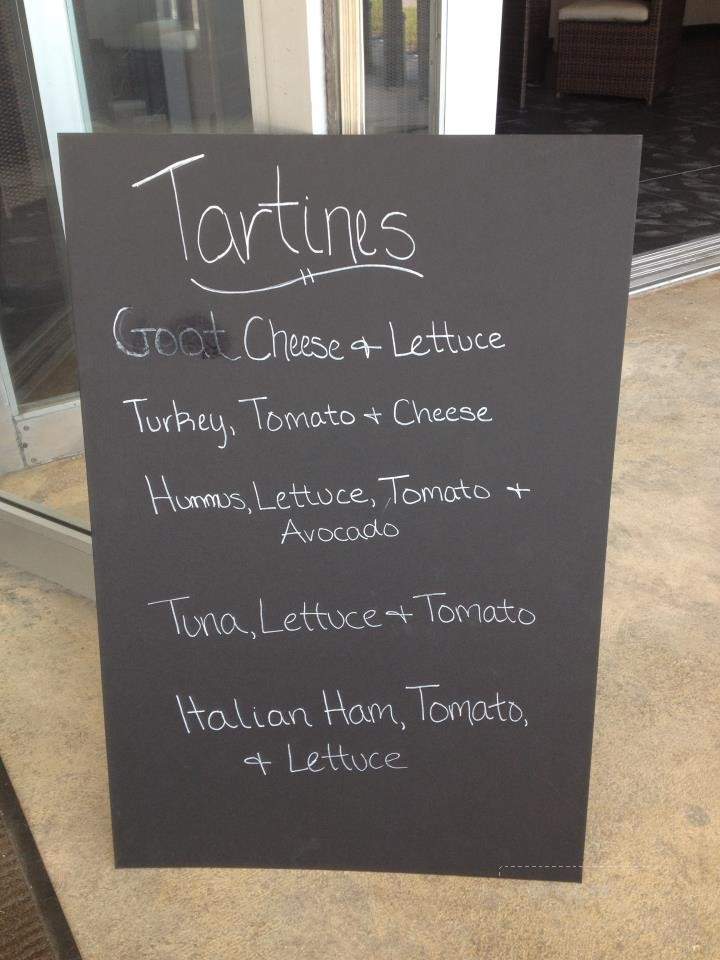 Tartines
Goat Cheese & Lettuce
Turkey, Tomato + Cheese
Hummus, Lettuce, Tomato +
Avocado
Tuna, Lettuce + Tomato
Italian Ham, Tomato,
& Lettuce